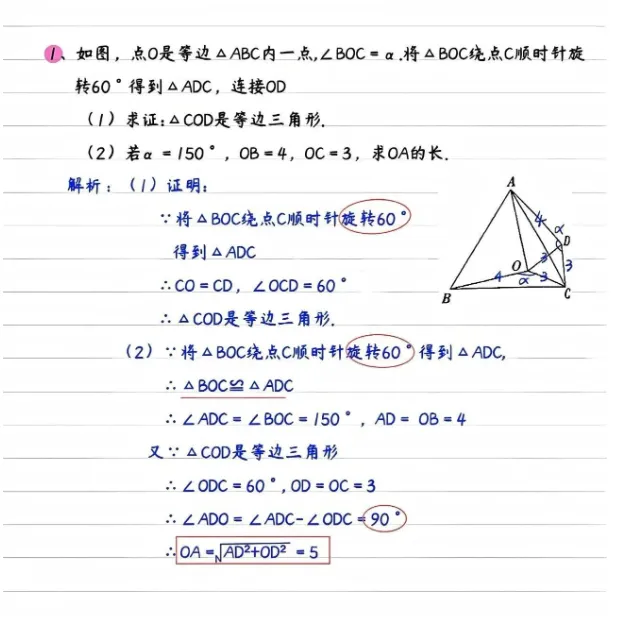 1、如图，点O是等边△ABC内一点,∠BOC=α.将△BOC绕点C顺时针旋
转60°得到△ADC，连接OD
(1)求证:△COD是等边三角形.
(2)若α=150°，OB=4，OC=3，求OA的长.
解析：(1)证明:
∵将△BOC绕点C顺时针旋转60°
得到△ADC
∴CO=CD，∠OCD=60°
∴△COD是等边三角形.
(2)∵将△BOC绕点C顺时针旋转60°得到△ADC,
∴△BOC≌△ADC
∴∠ADC=∠BOC=150°，AD=OB=4
又∵△COD是等边三角形
∴∠ODC=60°,OD=OC=3
∴∠ADO=∠ADC-∠ODC=90°
∴OA=√AD²+OD²=5
A
4 α
D
3
O 3
4 α 3
B C